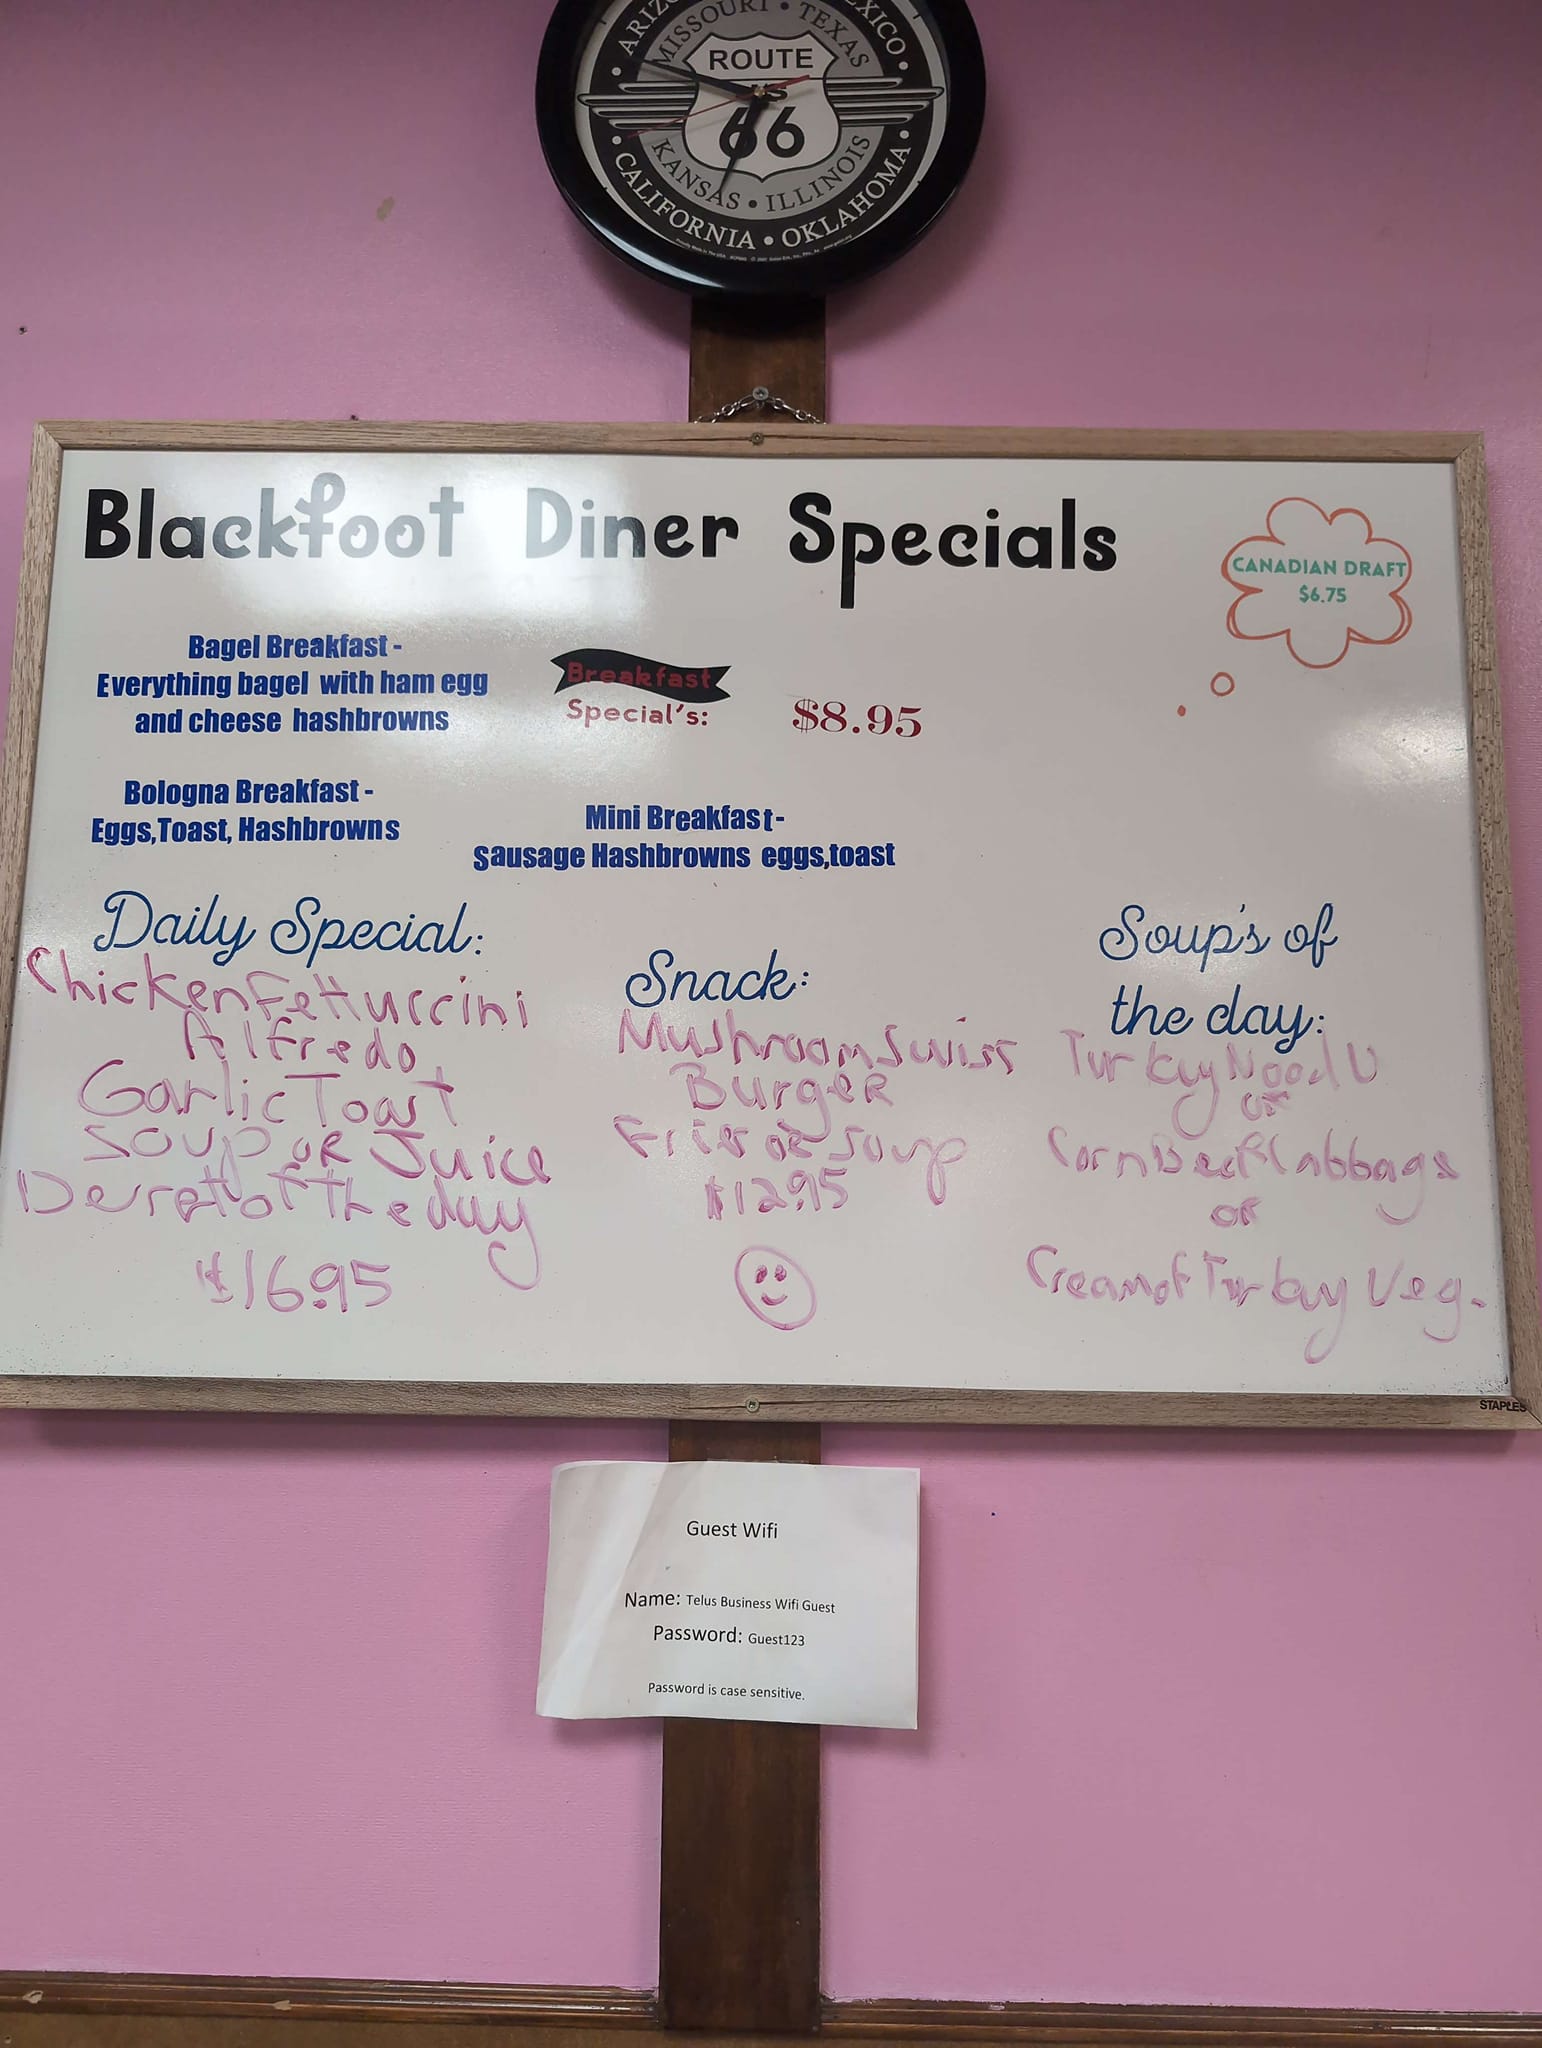 ROUTE
US
66
MISSOURI • TEXAS
KANSAS • ILLINOIS
CALIFORNIA • OKLAHOMA
Blackfoot Diner Specials
CANADIAN DRAFT
$6.75
Bagel Breakfast -
Everything bagel with ham egg
and cheese hashbrowns
Breakfast
Special's:
$8.95
Bologna Breakfast -
Eggs,Toast, Hashbrowns
Mini Breakfast-
sausage Hashbrowns eggs,toast
Daily Special:
Chicken Fettuccini
Alfredo,
Garlic Toast
Soup or Juice
Desert of the day
$16.95
Snack:
Mushroom Swiss
Burger
Fries or Soup
$12.95
Soup's of
the day:
Turkey Nood U
or
Corn Beef Cabbage
or
Cream of Turkey Veg.
STAPLES
Guest Wifi
Name: Telus Business Wifi Guest
Password: Guest123
Password is case sensitive.